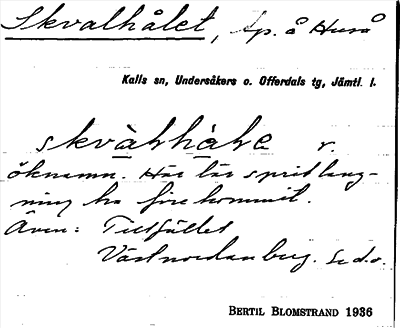 Skvalhålet, lp. å Huså
Kalls sn, Undersåkers o. Offerdals tg, Jämtl. l.
skvàhhàłe r.
öknamn. Här lär spritlang-
ning ha förekommit.
Även: Tillfället
Västnordanberg. Se d.o.
BERTIL BLOMSTRAND 1936